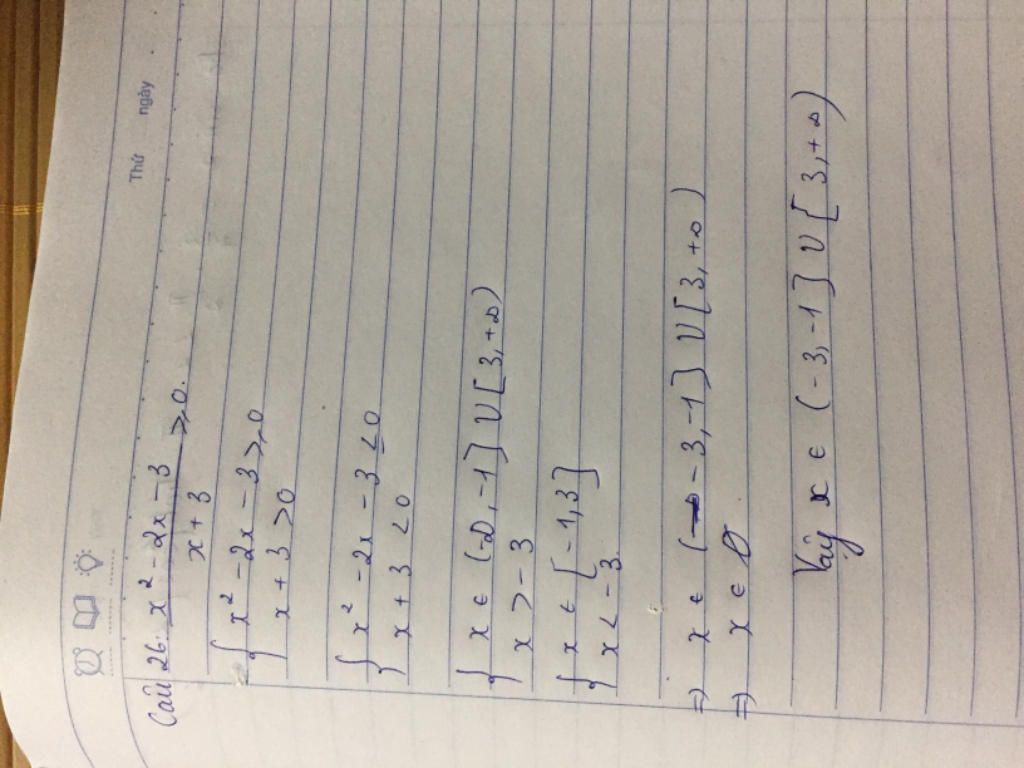 Thứ ngày
Câu 26: x² - 2x - 3 / x + 3 ≥ 0.
{ x² - 2x - 3 ≥ 0
x + 3 > 0
{ x² - 2x - 3 ≤ 0
x + 3 < 0
{ x ∈ (-∞, -1] ∪ [3, +∞)
x > -3
{ x ∈ [-1, 3]
x < -3
=> x ∈ (-3, -1] ∪ [3, +∞)
=> x ∈ ∅
Vậy x ∈ (-3, -1] ∪ [3, +∞)